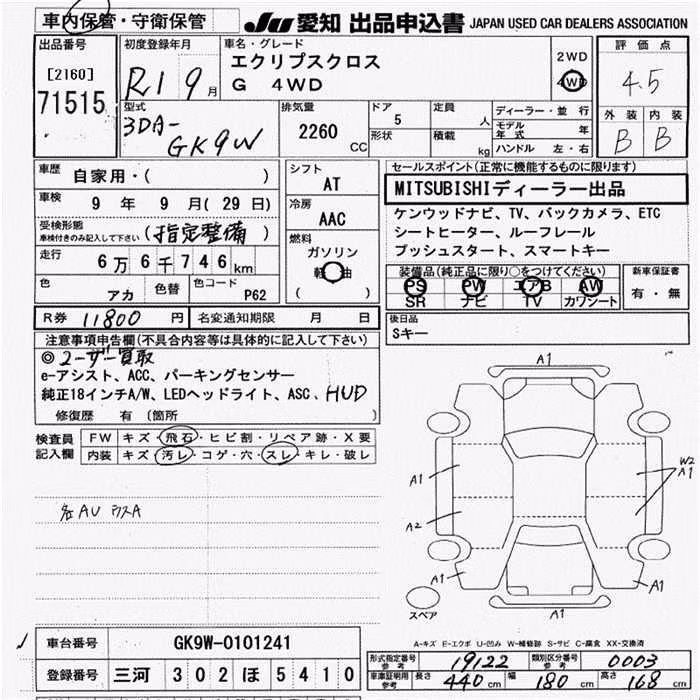 車内保管・守衛保管
JU 愛知 出品申込書 JAPAN USED CAR DEALERS ASSOCIATION
出品番号
[2160]
71515
初度登録年月
R1 9月
車名・グレード
エクリプスクロス
G 4WD
2WD
4WD
評価点
4.5
外装 内装
B B
型式
3DA-
GK9W
排気量
2260
CC
ドア
5
形状
定員
人
積載
kg
ディーラー・並行
モデル年式 年
ハンドル 左・右
車歴
自家用・( )
車検
9 年 9 月 ( 29 日)
受検形態
車検付きのみ記入して下さい
(指定整備)
走行
6万6千746km
色
アカ
色替
色コード
P62
シフト
AT
冷房
AAC
燃料
ガソリン
軽油
( )
セールスポイント(正常に機能するものに限ります)
MITSUBISHIディーラー出品
ケンウッドナビ、TV、バックカメラ、ETC
シートヒーター、ルーフレール
プッシュスタート、スマートキー
装備品(純正品に限り○をつけてください)
PS PW エアB AW
SR ナビ TV カワシート
新車保証書
有・無
R券 11800 円
名変通知期限 月 日
後日品
Sキー
注意事項申告欄(不具合内容等は具体的に記入して下さい)
◎ユーザー買取
e-アシスト、ACC、パーキングセンサー
純正18インチA/W、LEDヘッドライト、ASC、HUD
修復歴 有 (箇所 )
検査員
記入欄
FW キズ・飛石・ヒビ割・リペア跡・X要
内装 キズ・汚レ・コゲ・穴・スレ・キレ・破レ
各AU ウスA
A1
A1
W2
A1
A2
A1
A1
スペア
A1
A-キズ E-エクボ U-凹み W-補修跡 S-サビ C-腐食 XX-交換済
車台番号
GK9W-0101241
登録番号
三河 302 ほ 5410
形式指定番号
参考
19122
類別区分番号
参考
0003
車庫証明用
参考
長さ 440cm 幅 180cm 高さ 168cm